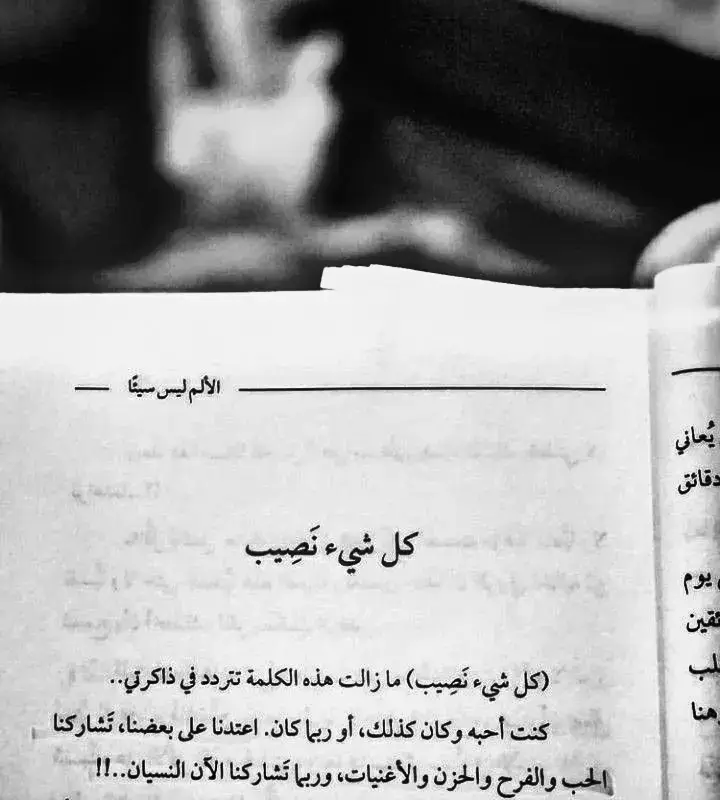 الألم ليس سيئًا
كل شيء نَصِيب
(كل شيء نَصِيب) ما زالت هذه الكلمة تتردد في ذاكرتي..
كنت أحبه وكان كذلك، أو ربما كان. اعتدنا على بعضنا، تَشاركنا
الحب والفرح والحزن والأغنيات، وربما تَشاركنا الآن النسيان..!!
يُعاني
دقائق
يوم